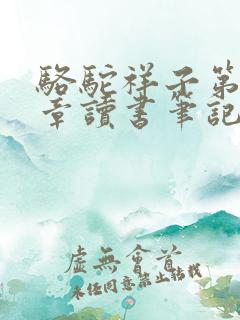 駱駝祥子第
章讀書筆記
虛無會首
未經同意禁止轉載